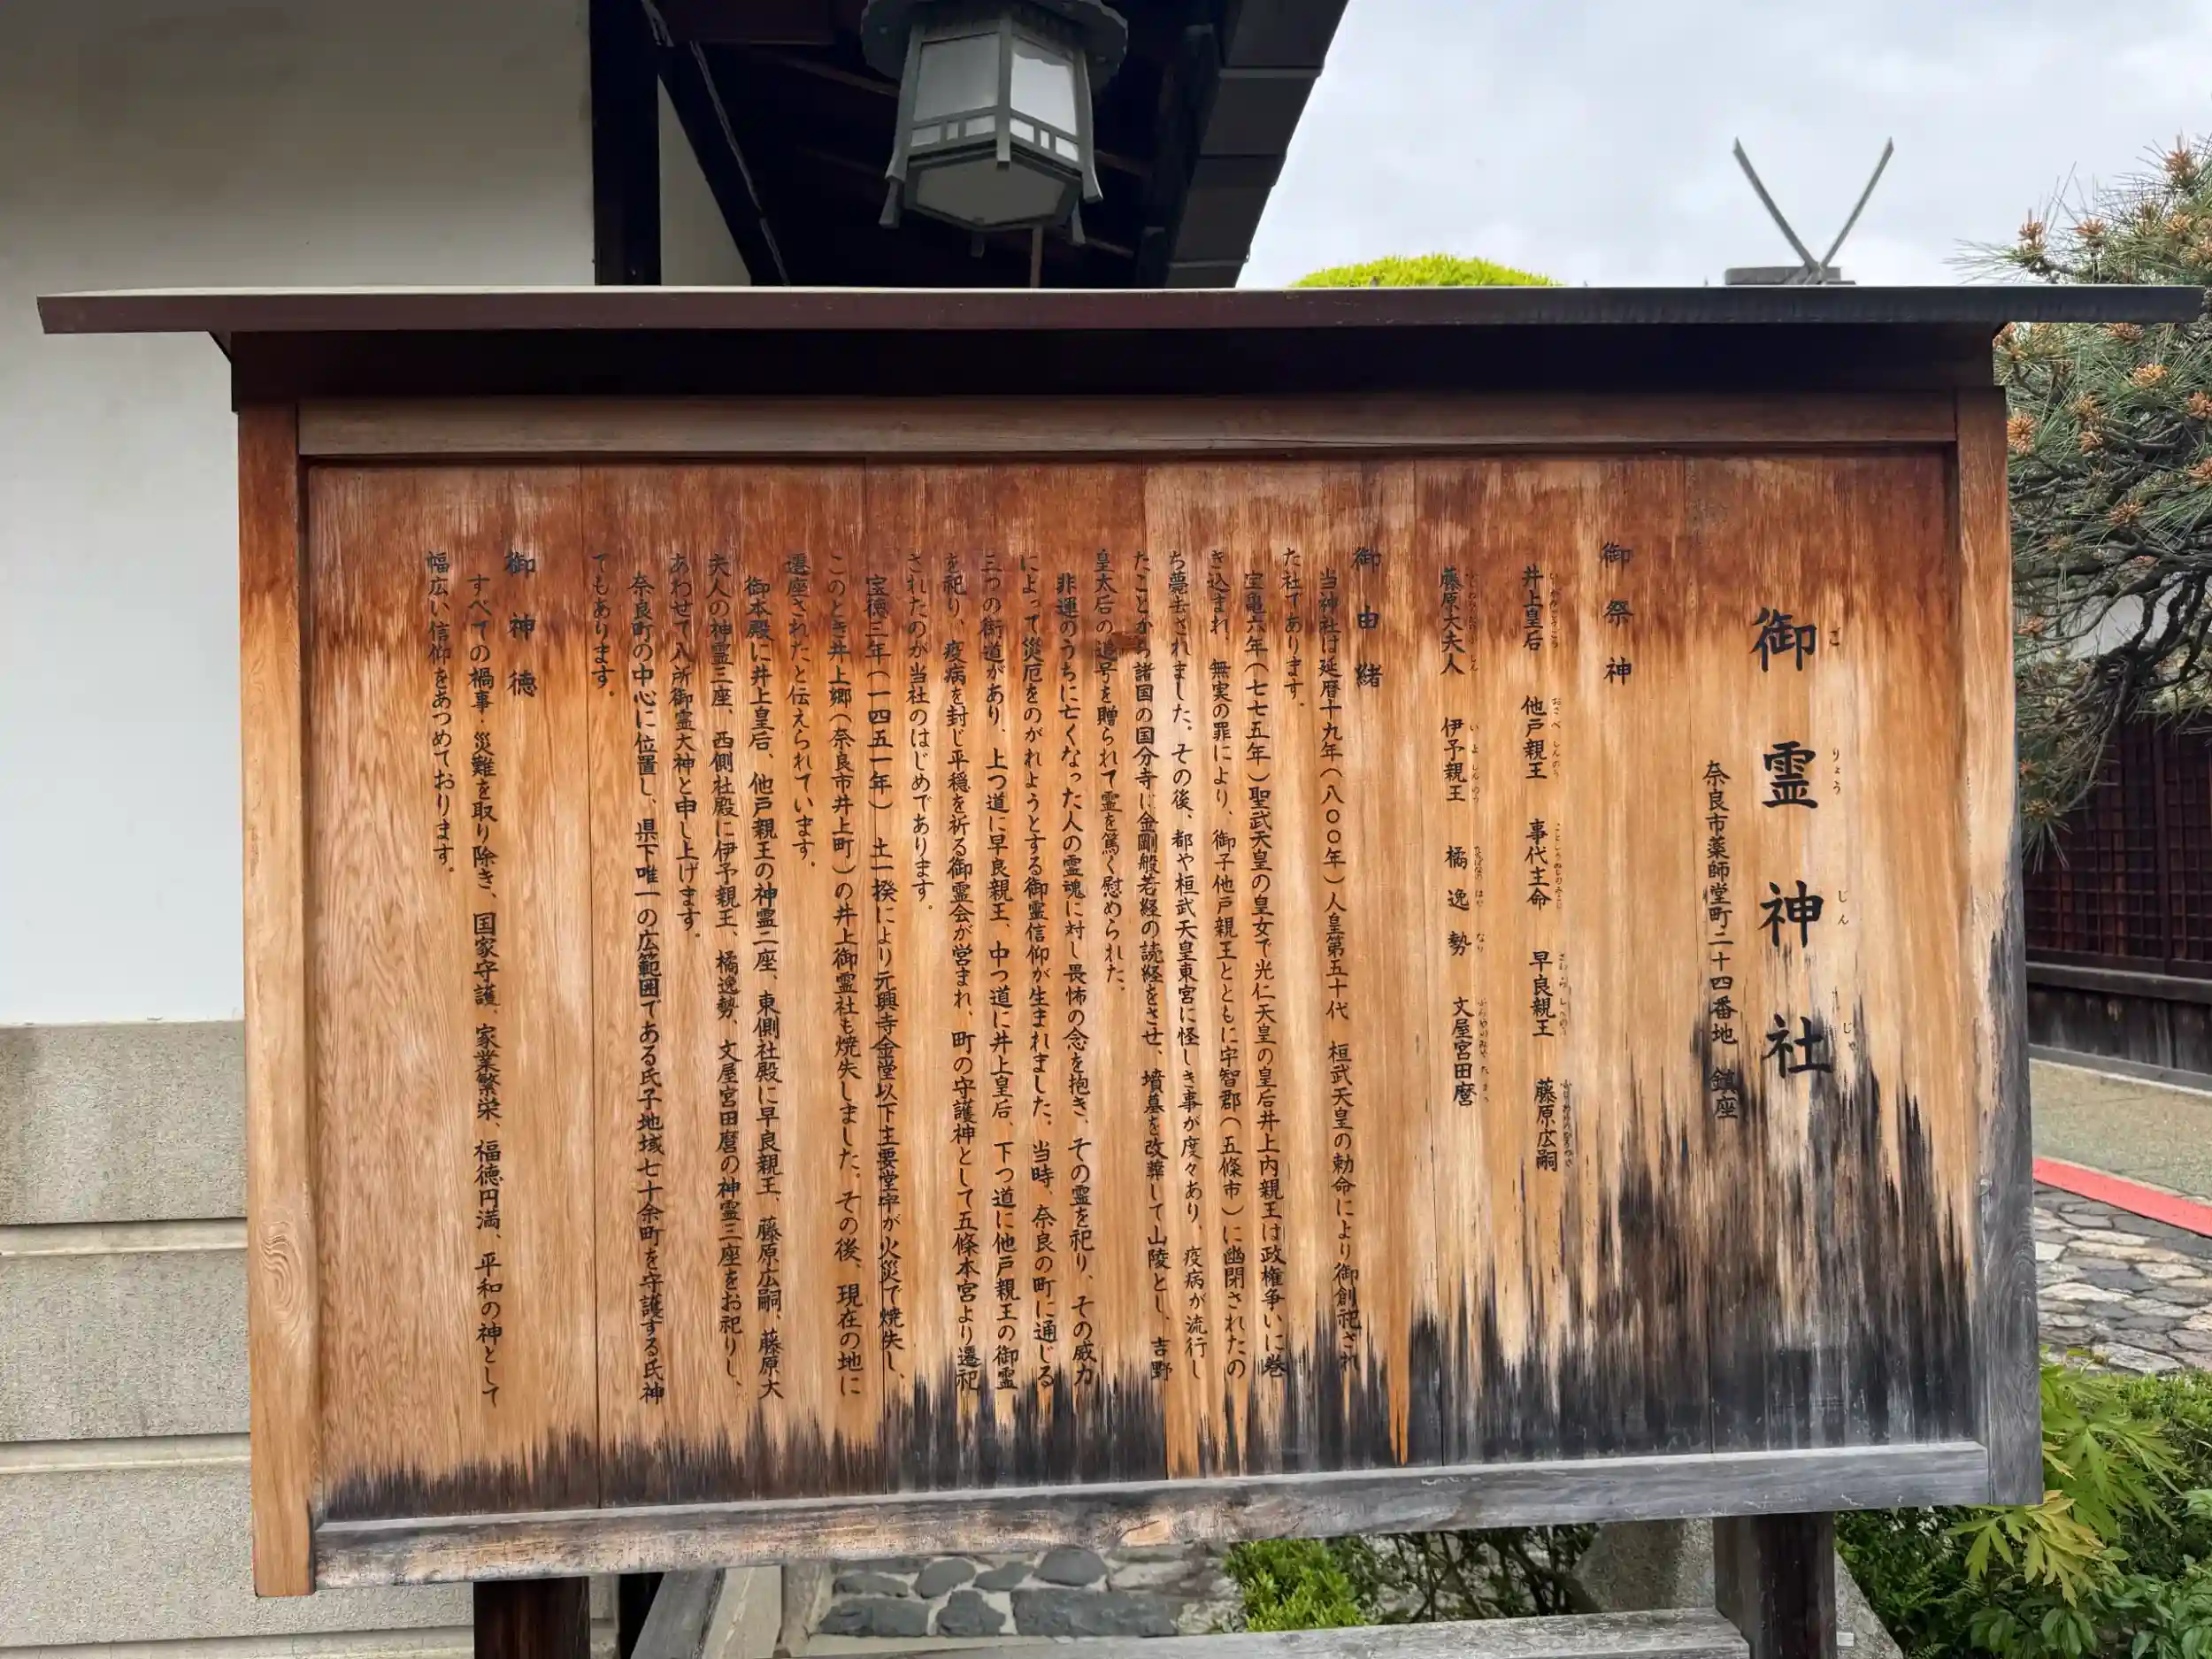 御霊神社
ごりょうじんじゃ
奈良市薬師堂町二十四番地　鎮座
御祭神
井上皇后　他戸親王　事代主命　早良親王　藤原広嗣
藤原大夫人　伊予親王　橘逸勢　文屋宮田麿
御由緒
当神社は延暦十九年（八〇〇年）人皇第五十代　桓武天皇の勅命により御創祀され
た社であります。
宝亀六年（七七五年）聖武天皇の皇女で光仁天皇の皇后井上内親王は政権争いに巻
き込まれ、無実の罪により、御子他戸親王とともに宇智郡（五條市）に幽閉されたの
ち薨去されました。その後、都や桓武天皇東宮に怪しき事が度々あり、疫病が流行し
たことから諸国の国分寺に金剛般若経の読経をさせ、墳墓を改葬して山陵とし、吉野
皇太后の追号を贈られて霊を篤く慰められた。
非運のうちに亡くなった人の霊魂に対し畏怖の念を抱き、その霊を祀り、その威力
によって災厄をのがれようとする御霊信仰が生まれました。当時、奈良の町に通じる
三つの街道があり、上つ道に早良親王、中つ道に井上皇后、下つ道に他戸親王の御霊
を祀り、疫病を封じ平穏を祈る御霊会が営まれ、町の守護神として五條本宮より遷祀
されたのが当社のはじめであります。
宝徳三年（一四五一年）　土一揆により元興寺金堂以下主要堂宇が火災で焼失し、
このとき井上郷（奈良市井上町）の井上御霊社も焼失しました。その後、現在の地に
遷座されたと伝えられています。
御本殿に井上皇后、他戸親王の神霊二座、東側社殿に早良親王、藤原広嗣、藤原大
夫人の神霊三座、西側社殿に伊予親王、橘逸勢、文屋宮田麿の神霊三座をお祀りし、
あわせて八所御霊大神と申し上げます。
奈良町の中心に位置し、県下唯一の広範囲である氏子地域七十余町を守護する氏神
でもあります。
御神徳
すべての禍事・災難を取り除き、国家守護、家業繁栄、福徳円満、平和の神として
幅広い信仰をあつめております。